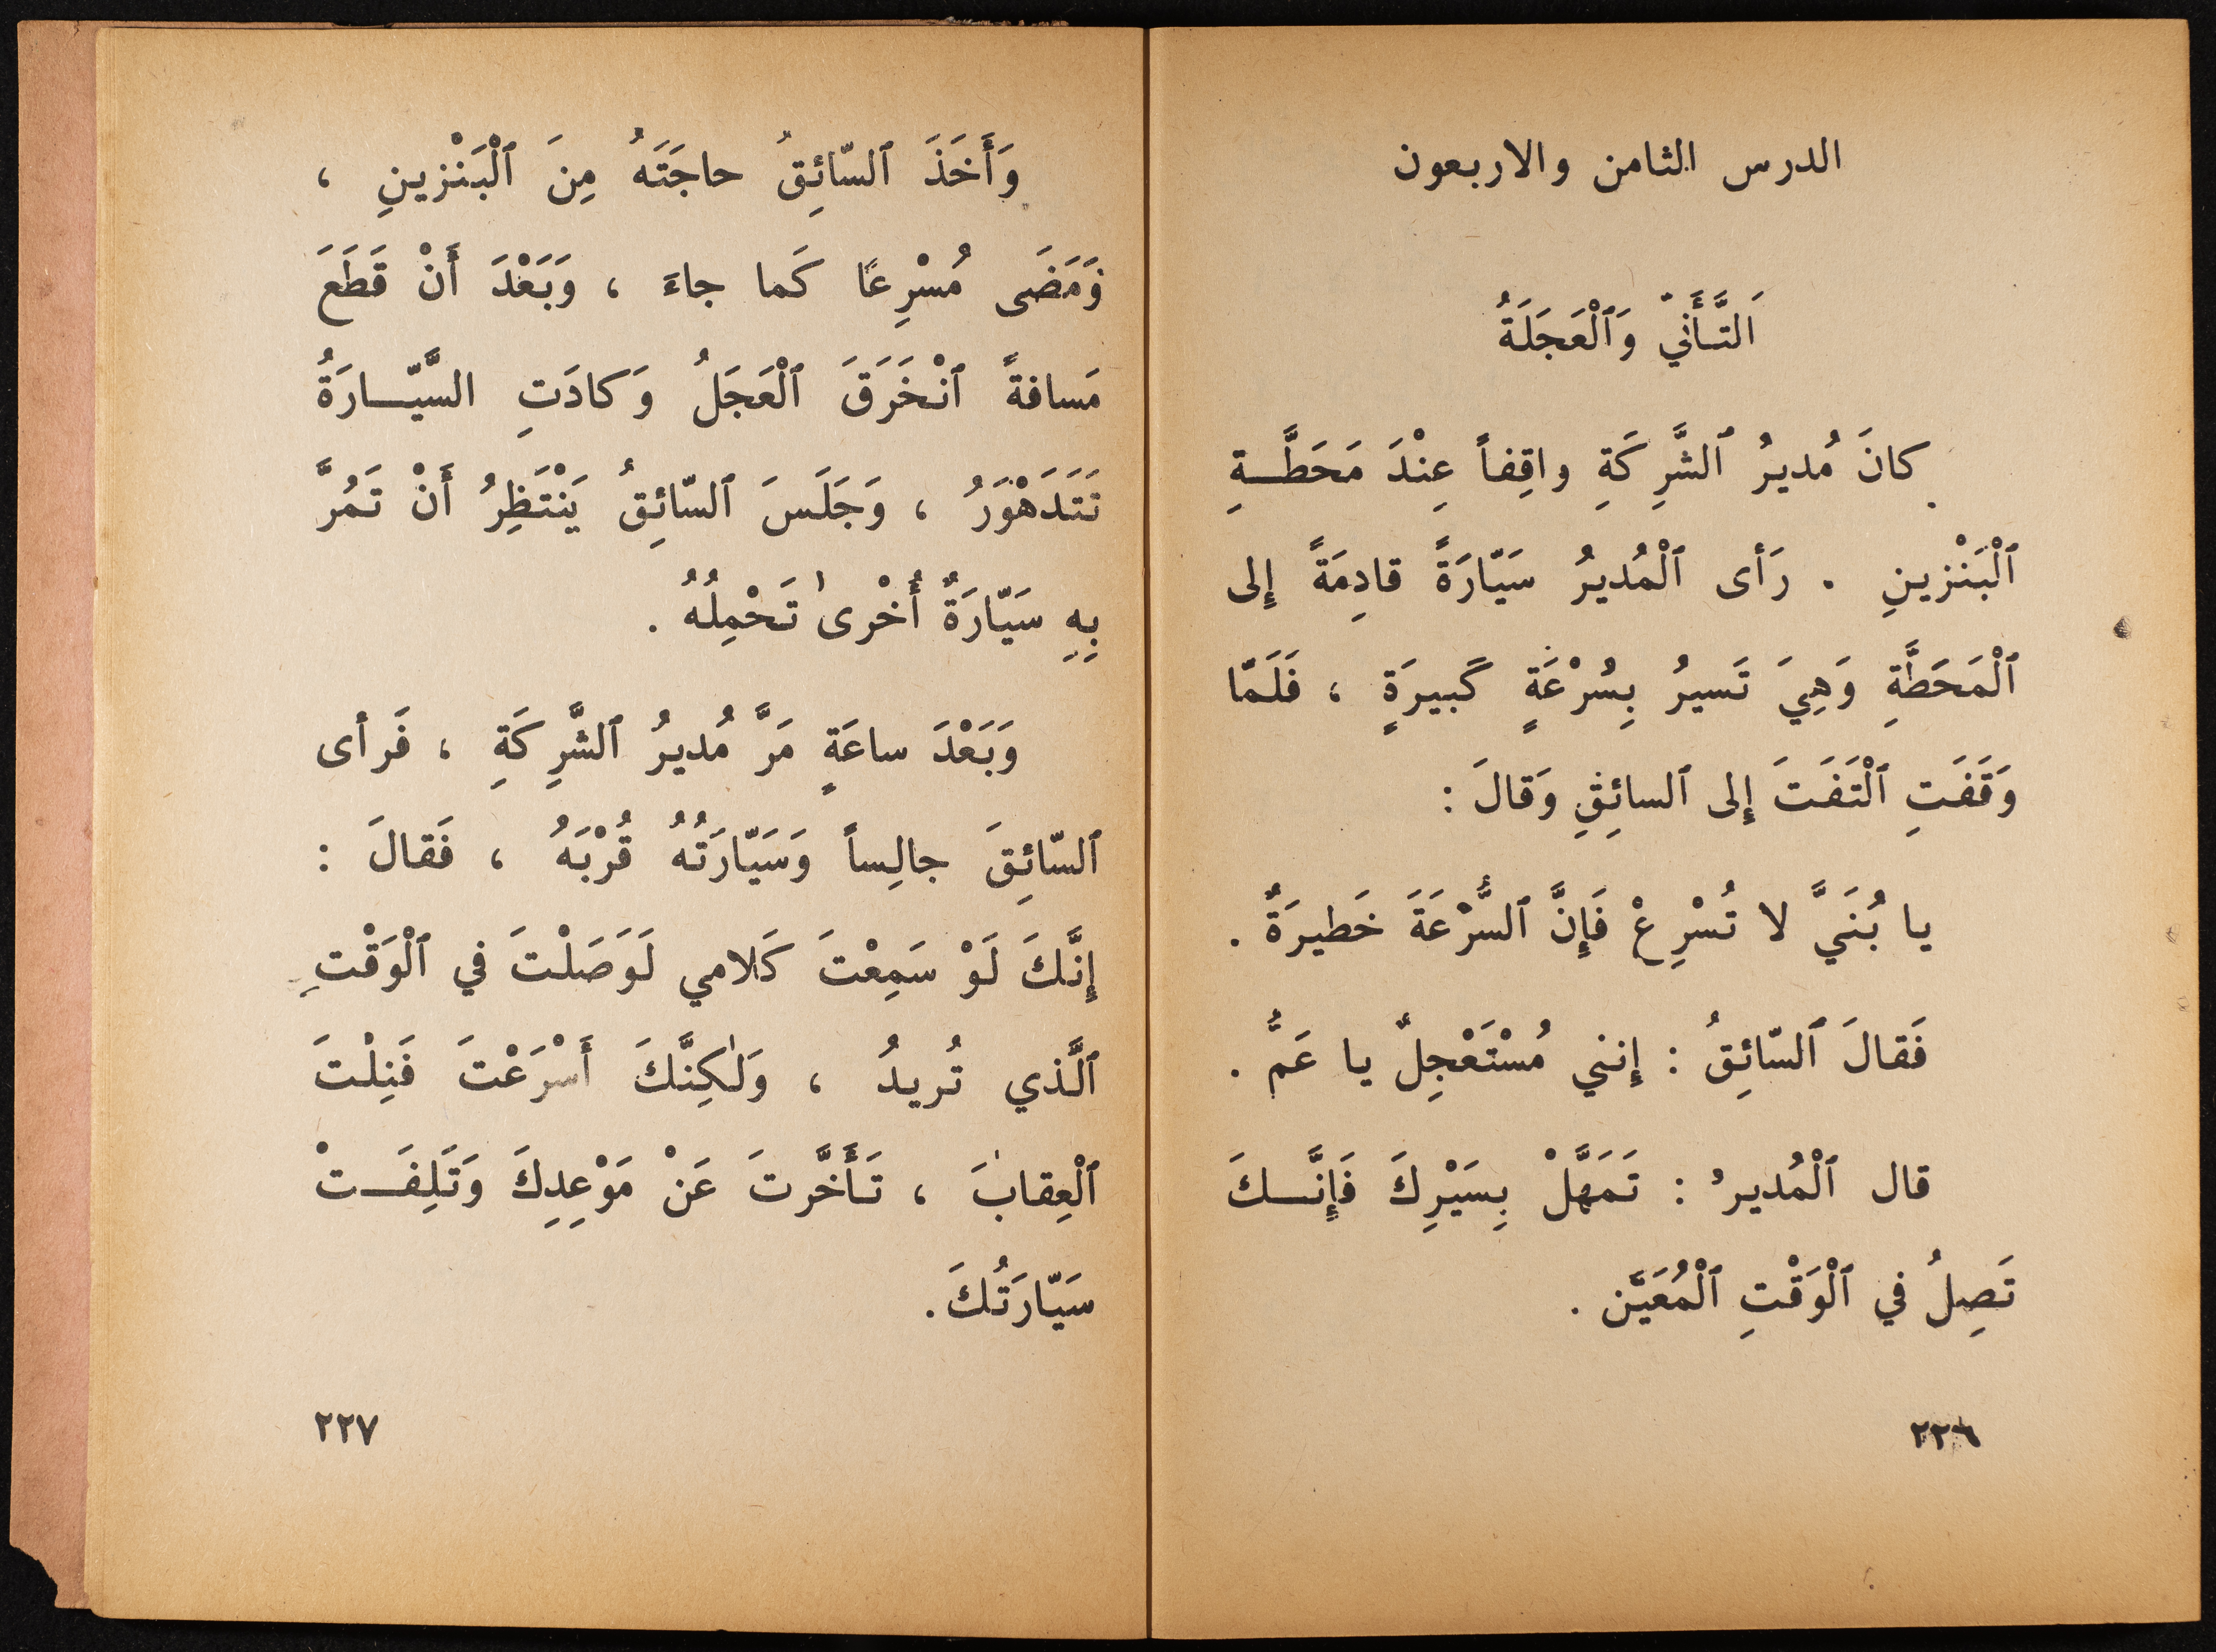 الدرس الثامن والاربعون
اَلتَّأَنّي وَٱلْعَجَلَةُ
كانَ مُديرُ ٱلشَّرِكَةِ واقِفاً عِنْدَ مَحَطَّـــةِ
ٱلْبَنْزينِ . رَأى ٱلْمُديرُ سَيّارَةً قادِمَةً إِلى
ٱلْمَحَطَّةِ وَهِيَ تَسيرُ بِسُرْعَةٍ كَبيرَةٍ ، فَلَمّا
وَقَفَتِ ٱلْتَفَتَ إِلى ٱلسائِقِ وَقالَ :
يا بُنَيَّ لا تُسْرِعْ فَإِنَّ ٱلسُّرْعَةَ خَطيرَةٌ .
فَقالَ ٱلسّائِقُ : إِنني مُسْتَعْجِلٌ يا عَمُّ .
قال ٱلْمُديرُ : تَمَهَّلْ بِسَيْرِكَ فَإِنَّـــكَ
تَصِلُ في ٱلْوَقْتِ ٱلْمُعَيَّن .
٢٢٦
وَأَخَذَ ٱلسّائِقُ حاجَتَهُ مِنَ ٱلْبَنْزينِ ،
وَمَضَى مُسْرِعًا كَما جاءَ ، وَبَعْدَ أَنْ قَطَعَ
مَسافةً ٱنْخَرَقَ ٱلْعَجَلُ وَكادَتِ السَّيّـــارَةُ
تَتَدَهْوَرُ ، وَجَلَسَ ٱلسّائِقُ يَنْتَظِرُ أَنْ تَمُرَّ
بِهِ سَيّارَةٌ أُخْرىٰ تَحْمِلُهُ .
وَبَعْدَ ساعَةٍ مَرَّ مُديرُ ٱلشَّرِكَةِ ، فَرأى
ٱلسّائِقَ جالِساً وَسَيّارَتُهُ قُرْبَهُ ، فَقالَ :
إِنَّكَ لَوْ سَمِعْتَ كَلامي لَوَصَلْتَ في ٱلْوَقْتِ
ٱلَّذي تُريدُ ، وَلٰكِنَّكَ أَسْرَعْتَ فَنِلْتَ
ٱلْعِقابَ ، تَأَخَّرتَ عَنْ مَوْعِدِكَ وَتَلِفَـــتْ
سَيّارَتُكَ.
٢٢٧